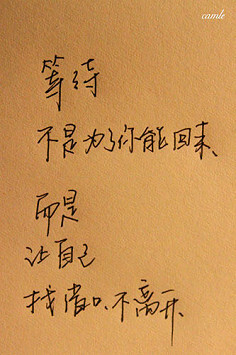 camle
等待
不是为了你能回来、
而是
让自己
找借口、不离开、